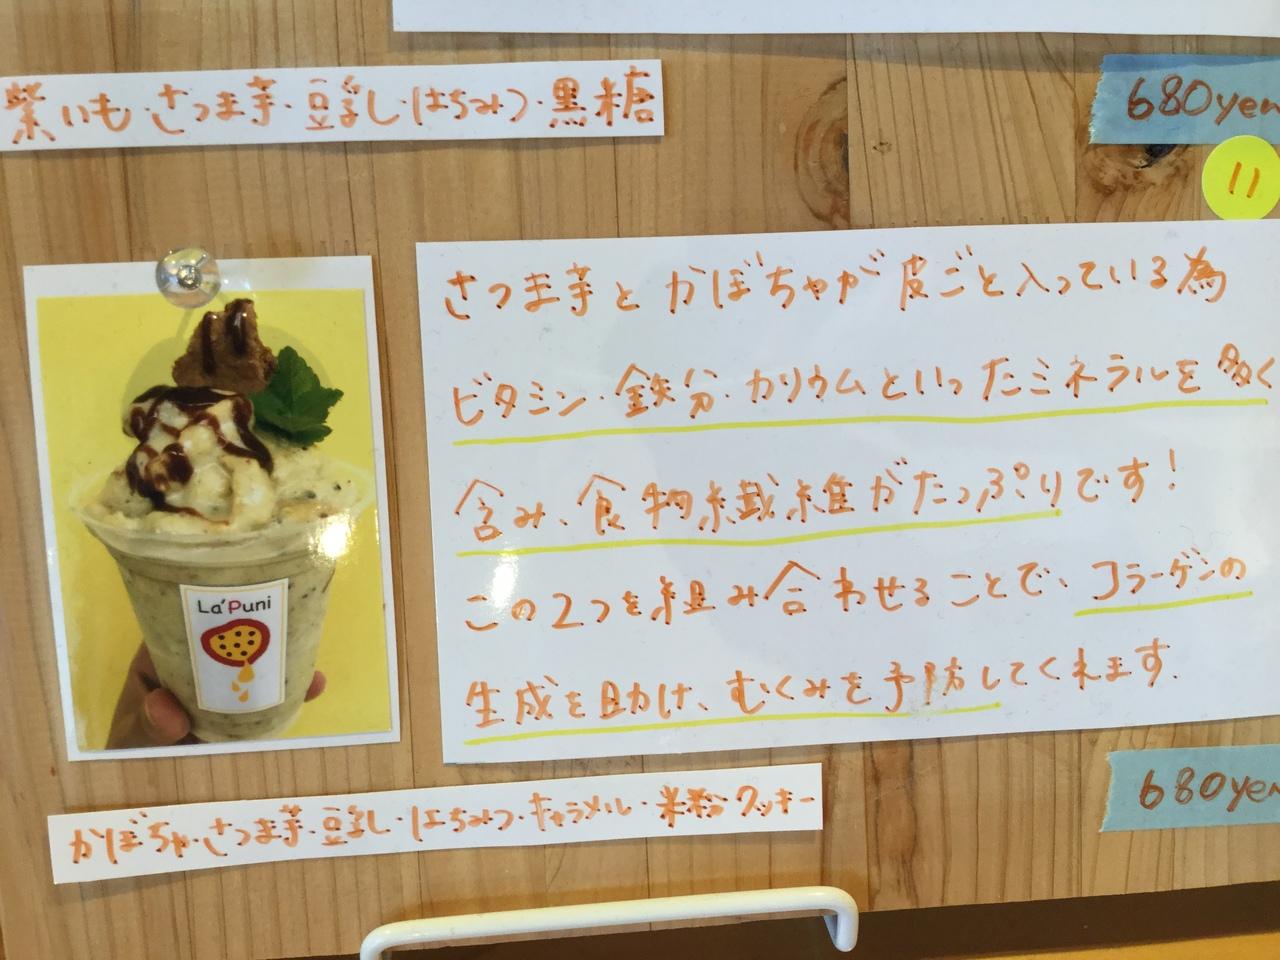 紫いも・さつま芋・豆乳・はちみつ・黒糖
680yen
11
さつま芋とかぼちゃが皮ごと入っている為
ビタミン・鉄分・カリウムといったミネラルを多く
含み、食物繊維がたっぷりです!
この2つを組み合わせることで、コラーゲンの
生成を助け、むくみを予防してくれます.
La'Puni
かぼちゃ・さつま芋・豆乳・はちみつ・キャラメル・米粉クッキー
680yen